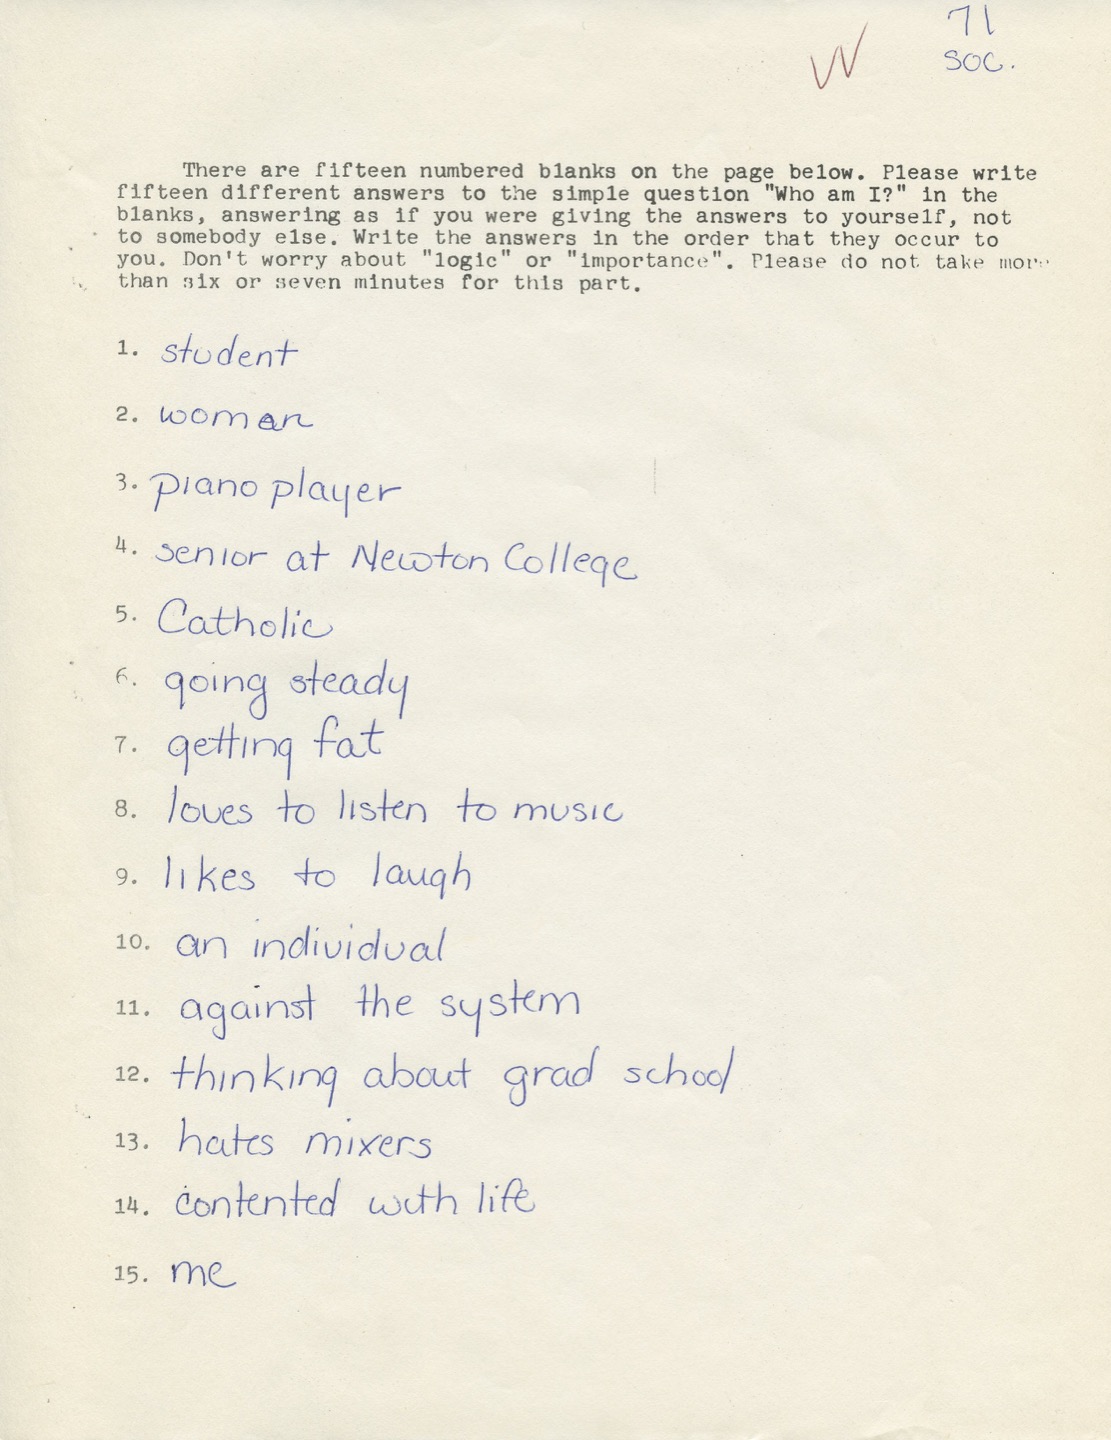 71
SOC.
W
There are fifteen numbered blanks on the page below. Please write
fifteen different answers to the simple question "Who am I?" in the
blanks, answering as if you were giving the answers to yourself, not
to somebody else. Write the answers in the order that they occur to
you. Don't worry about "logic" or "importance". Please do not take more
than six or seven minutes for this part.
1. student
2. woman
3. piano player
4. senior at Newton College
5. Catholic
6. going steady
7. getting fat
8. loves to listen to music
9. likes to laugh
10. an individual
11. against the system
12. thinking about grad school
13. hates mixers
14. contented with life
15. me